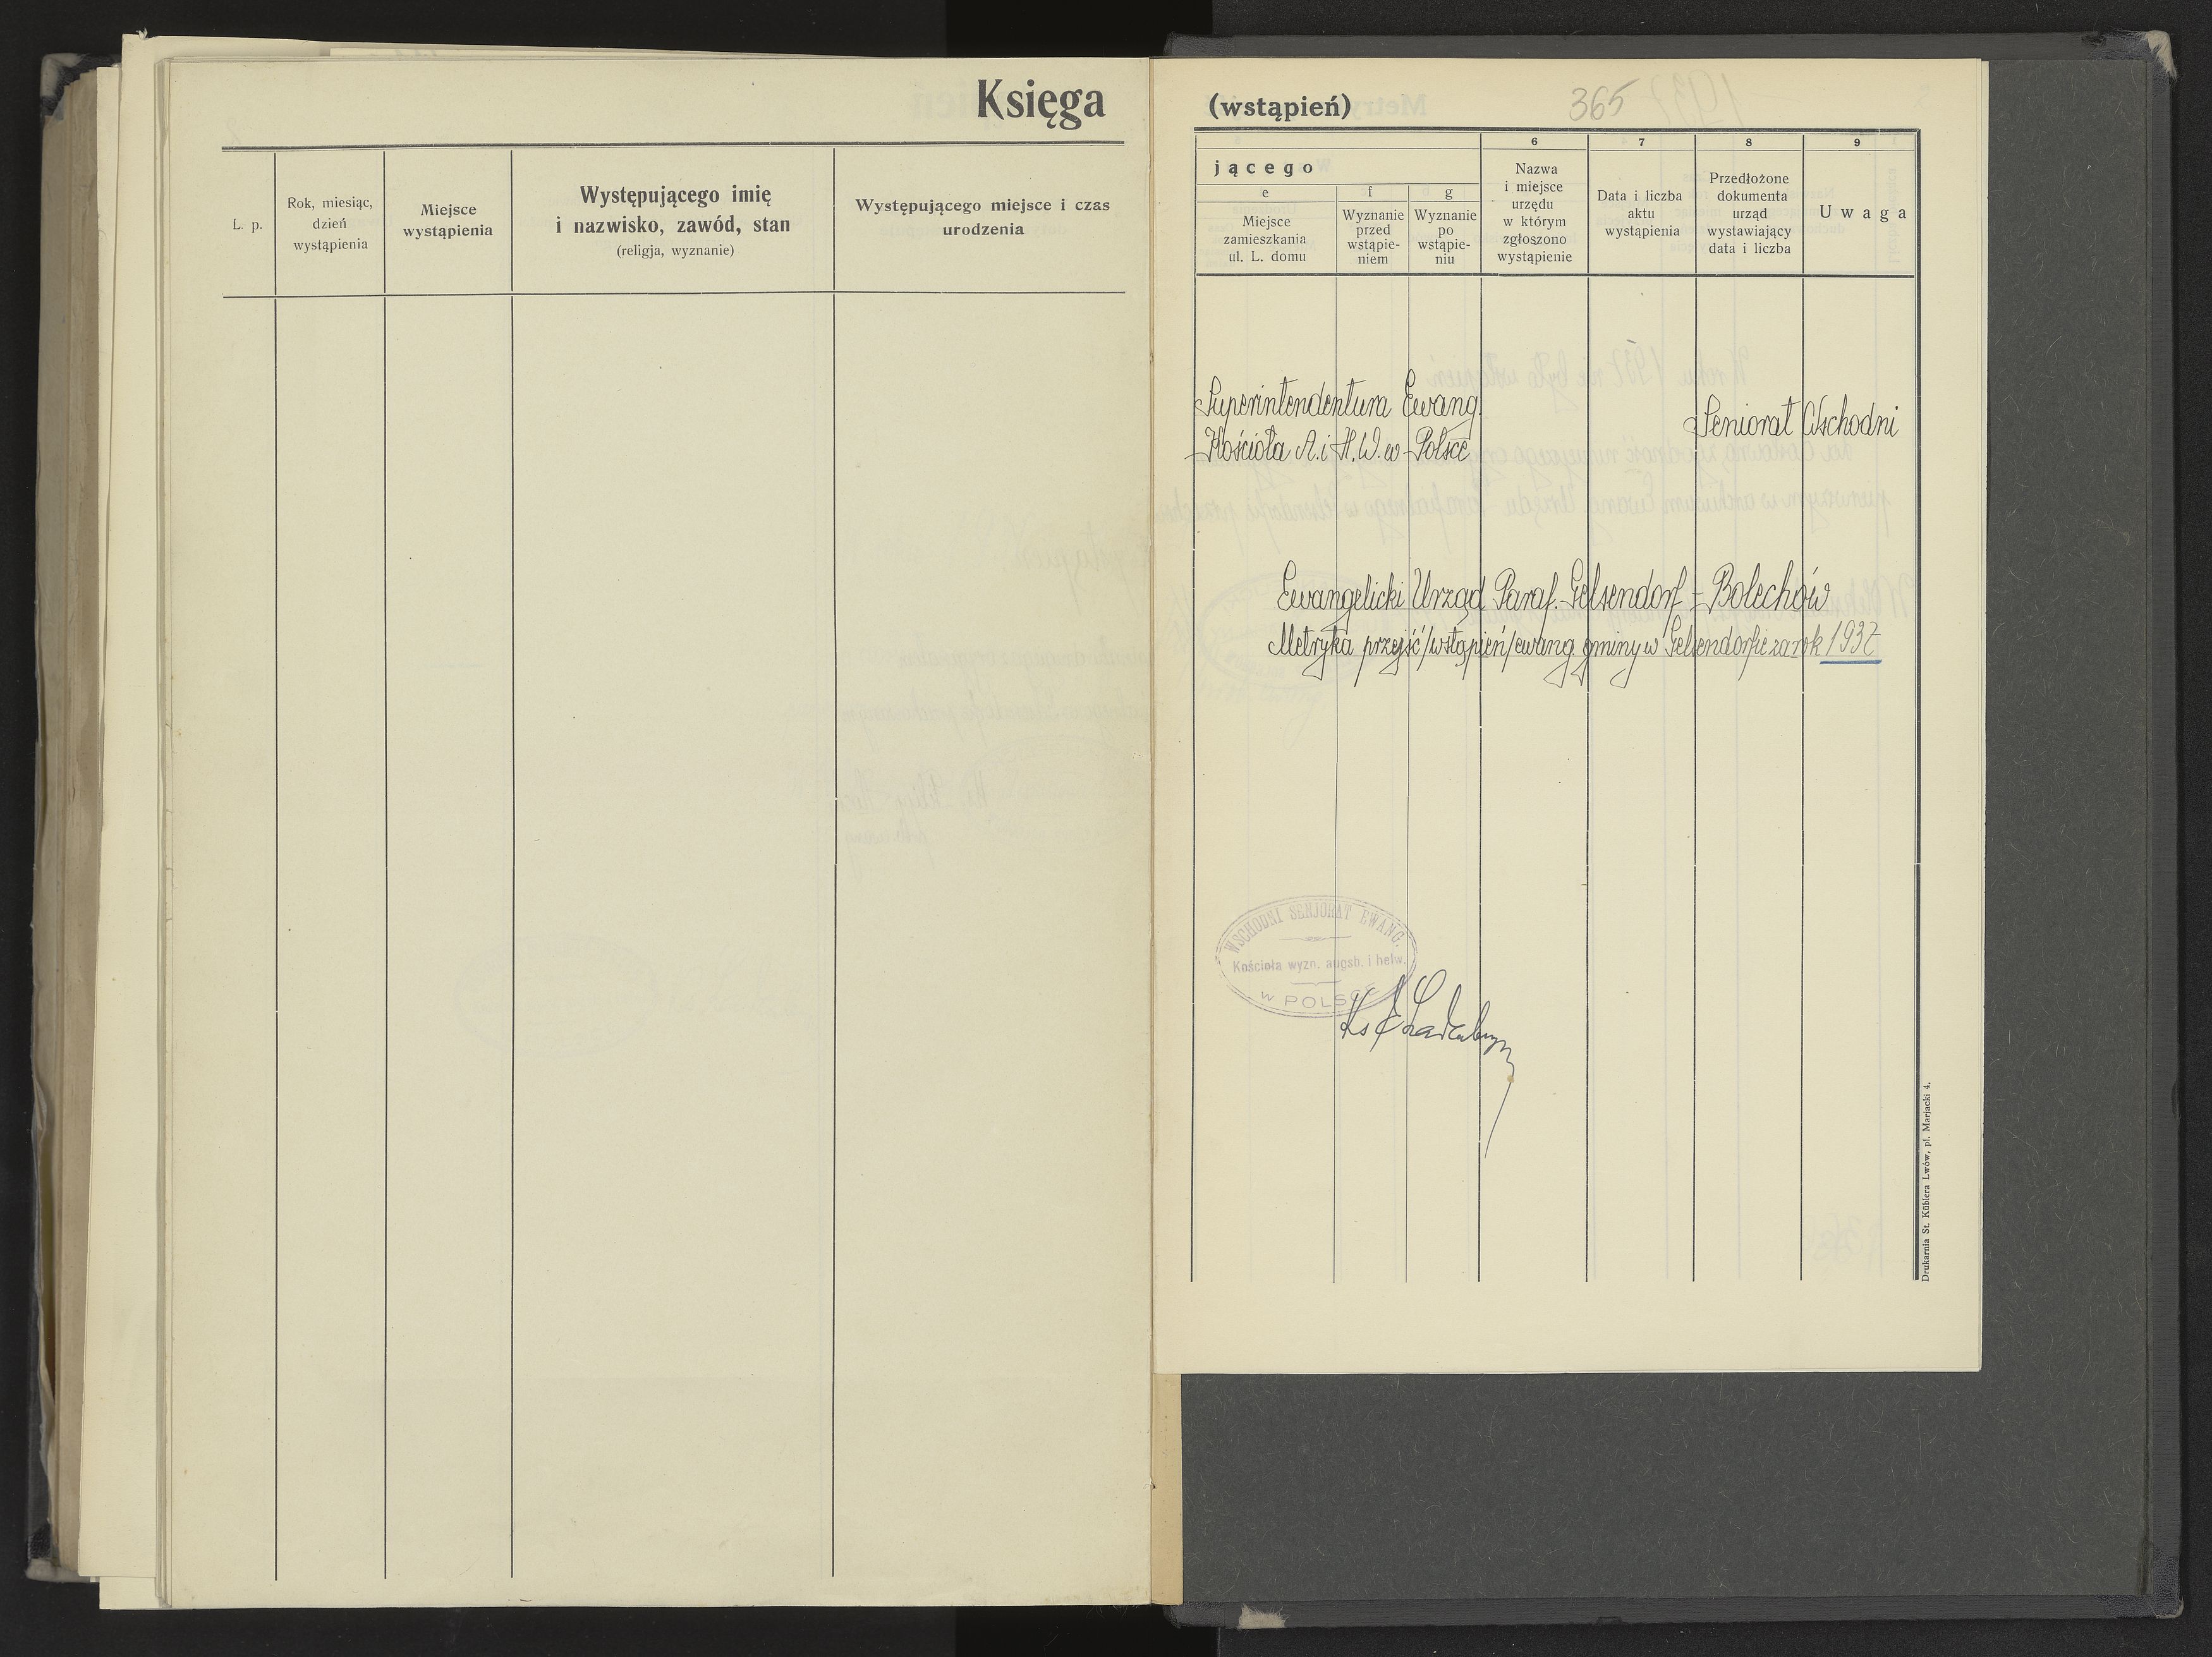 Księga
L. p.
Rok, miesiąc,
dzień
wystąpienia
Miejsce
wystąpienia
Występującego imię
i nazwisko, zawód, stan
(religja, wyznanie)
Występującego miejsce i czas
urodzenia
(wstąpień)
365
jącego
e
Miejsce
zamieszkania
ul. L. domu
f
Wyznanie
przed
wstąpie-
niem
g
Wyznanie
po
wstąpie-
niu
6
Nazwa
i miejsce
urzędu
w którym
zgłoszono
wystąpienie
7
Data i liczba
aktu
wystąpienia
8
Przedłożone
dokumenta
urząd
wystawiający
data i liczba
9
Uwaga
Superintendentura Ewang.
Kościoła A. i H. W. w Polsce
Seniorat Wschodni
Ewangelicki Urząd Paraf. Gelsendorf = Bolechów
Metryka przejść /wstąpień/ ewang. gminy w Gelsendorfie za rok 1937
WSCHODNI SENJORAT EWANG.
Kościoła wyzn. augsb. i helw.
W POLSCE
Ks
Drukarnia St. Küblera Lwów, pl. Marjacki 4.